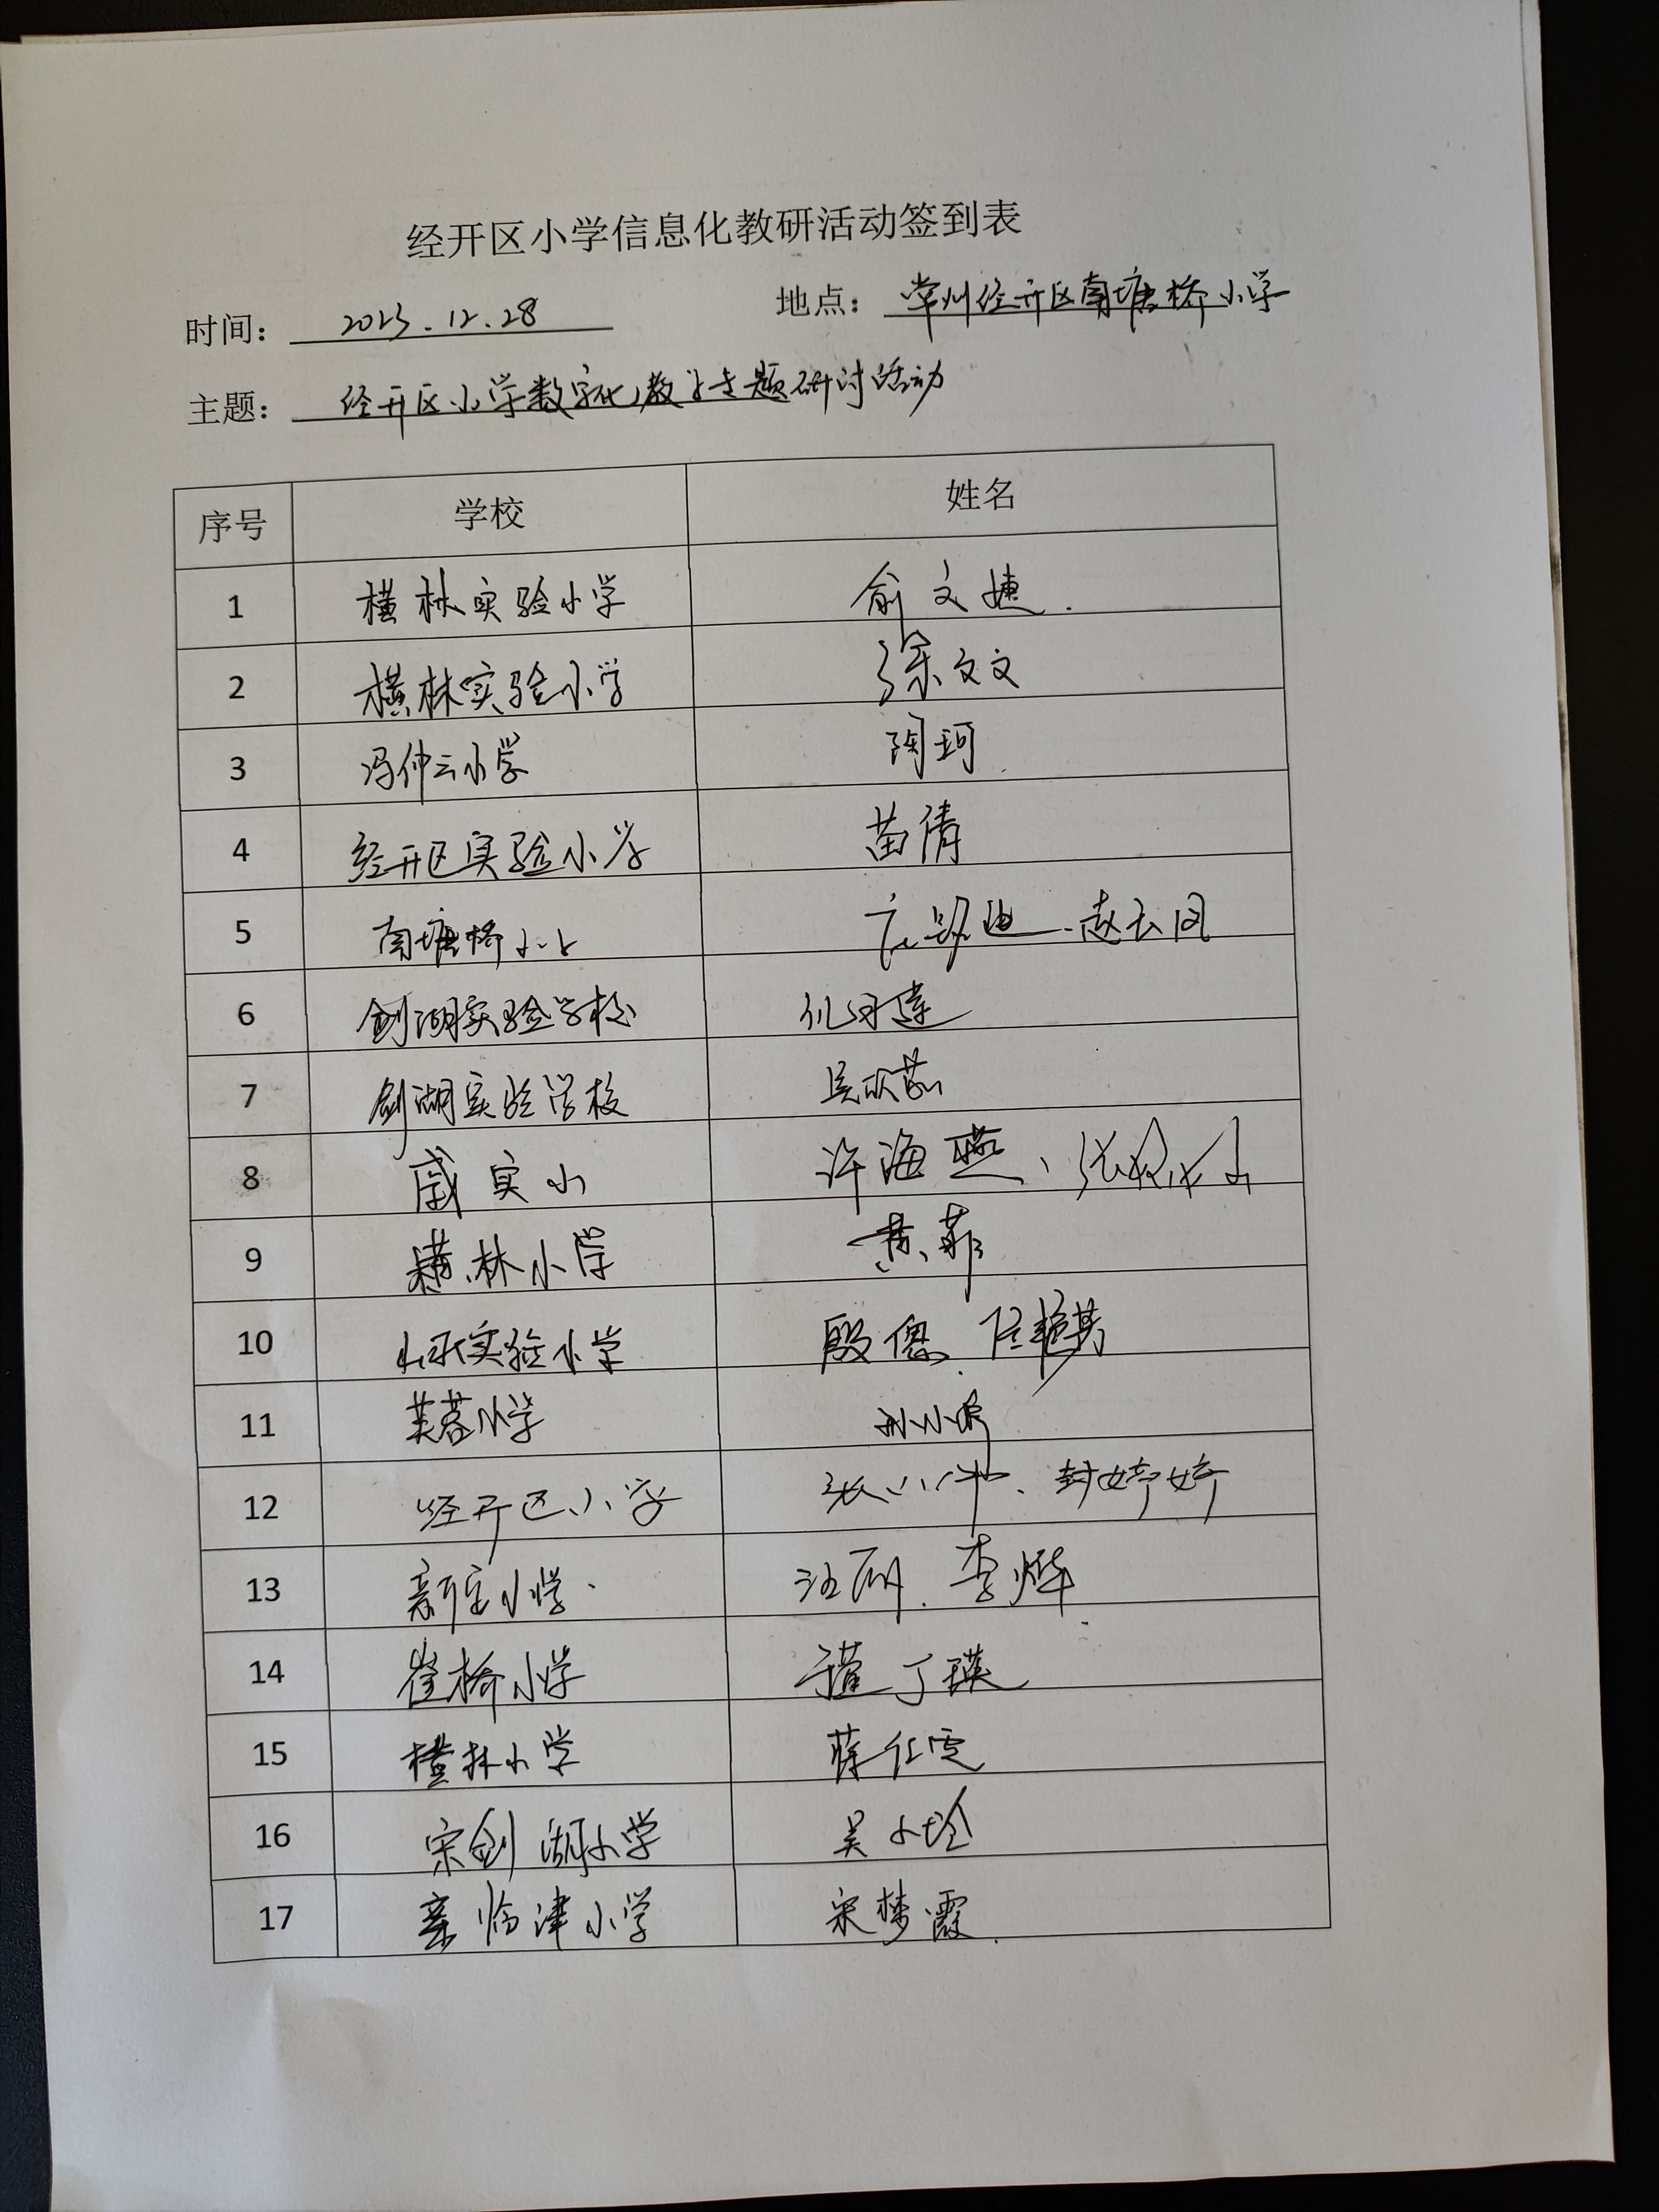 经开区小学信息化教研活动签到表
时间： 2023.12.28 地点： 常州经开区南塘桥小学
主题： 经开区小学数字化教学专题研讨活动
序号 学校 姓名
1 横林实验小学 俞文婕.
2 横林实验小学 徐文文
3 冯仲云小学 陶珂
4 经开区实验小学 苗倩
5 南塘桥小学 赵云凤
6 剑湖实验学校
7 剑湖实验学校
8 戚实小 许海燕、
9 横林小学 黄菲
10 实验小学 殷偲
11 芙蓉小学 孙小
12 经开区小学 张小、封婷婷
13 新安小学 汪丽、李烨
14 崔桥小学 丁瑛
15 横林小学 蒋仁雯
16 宋剑湖小学 吴小玲
17 临津小学 宋梦霞.